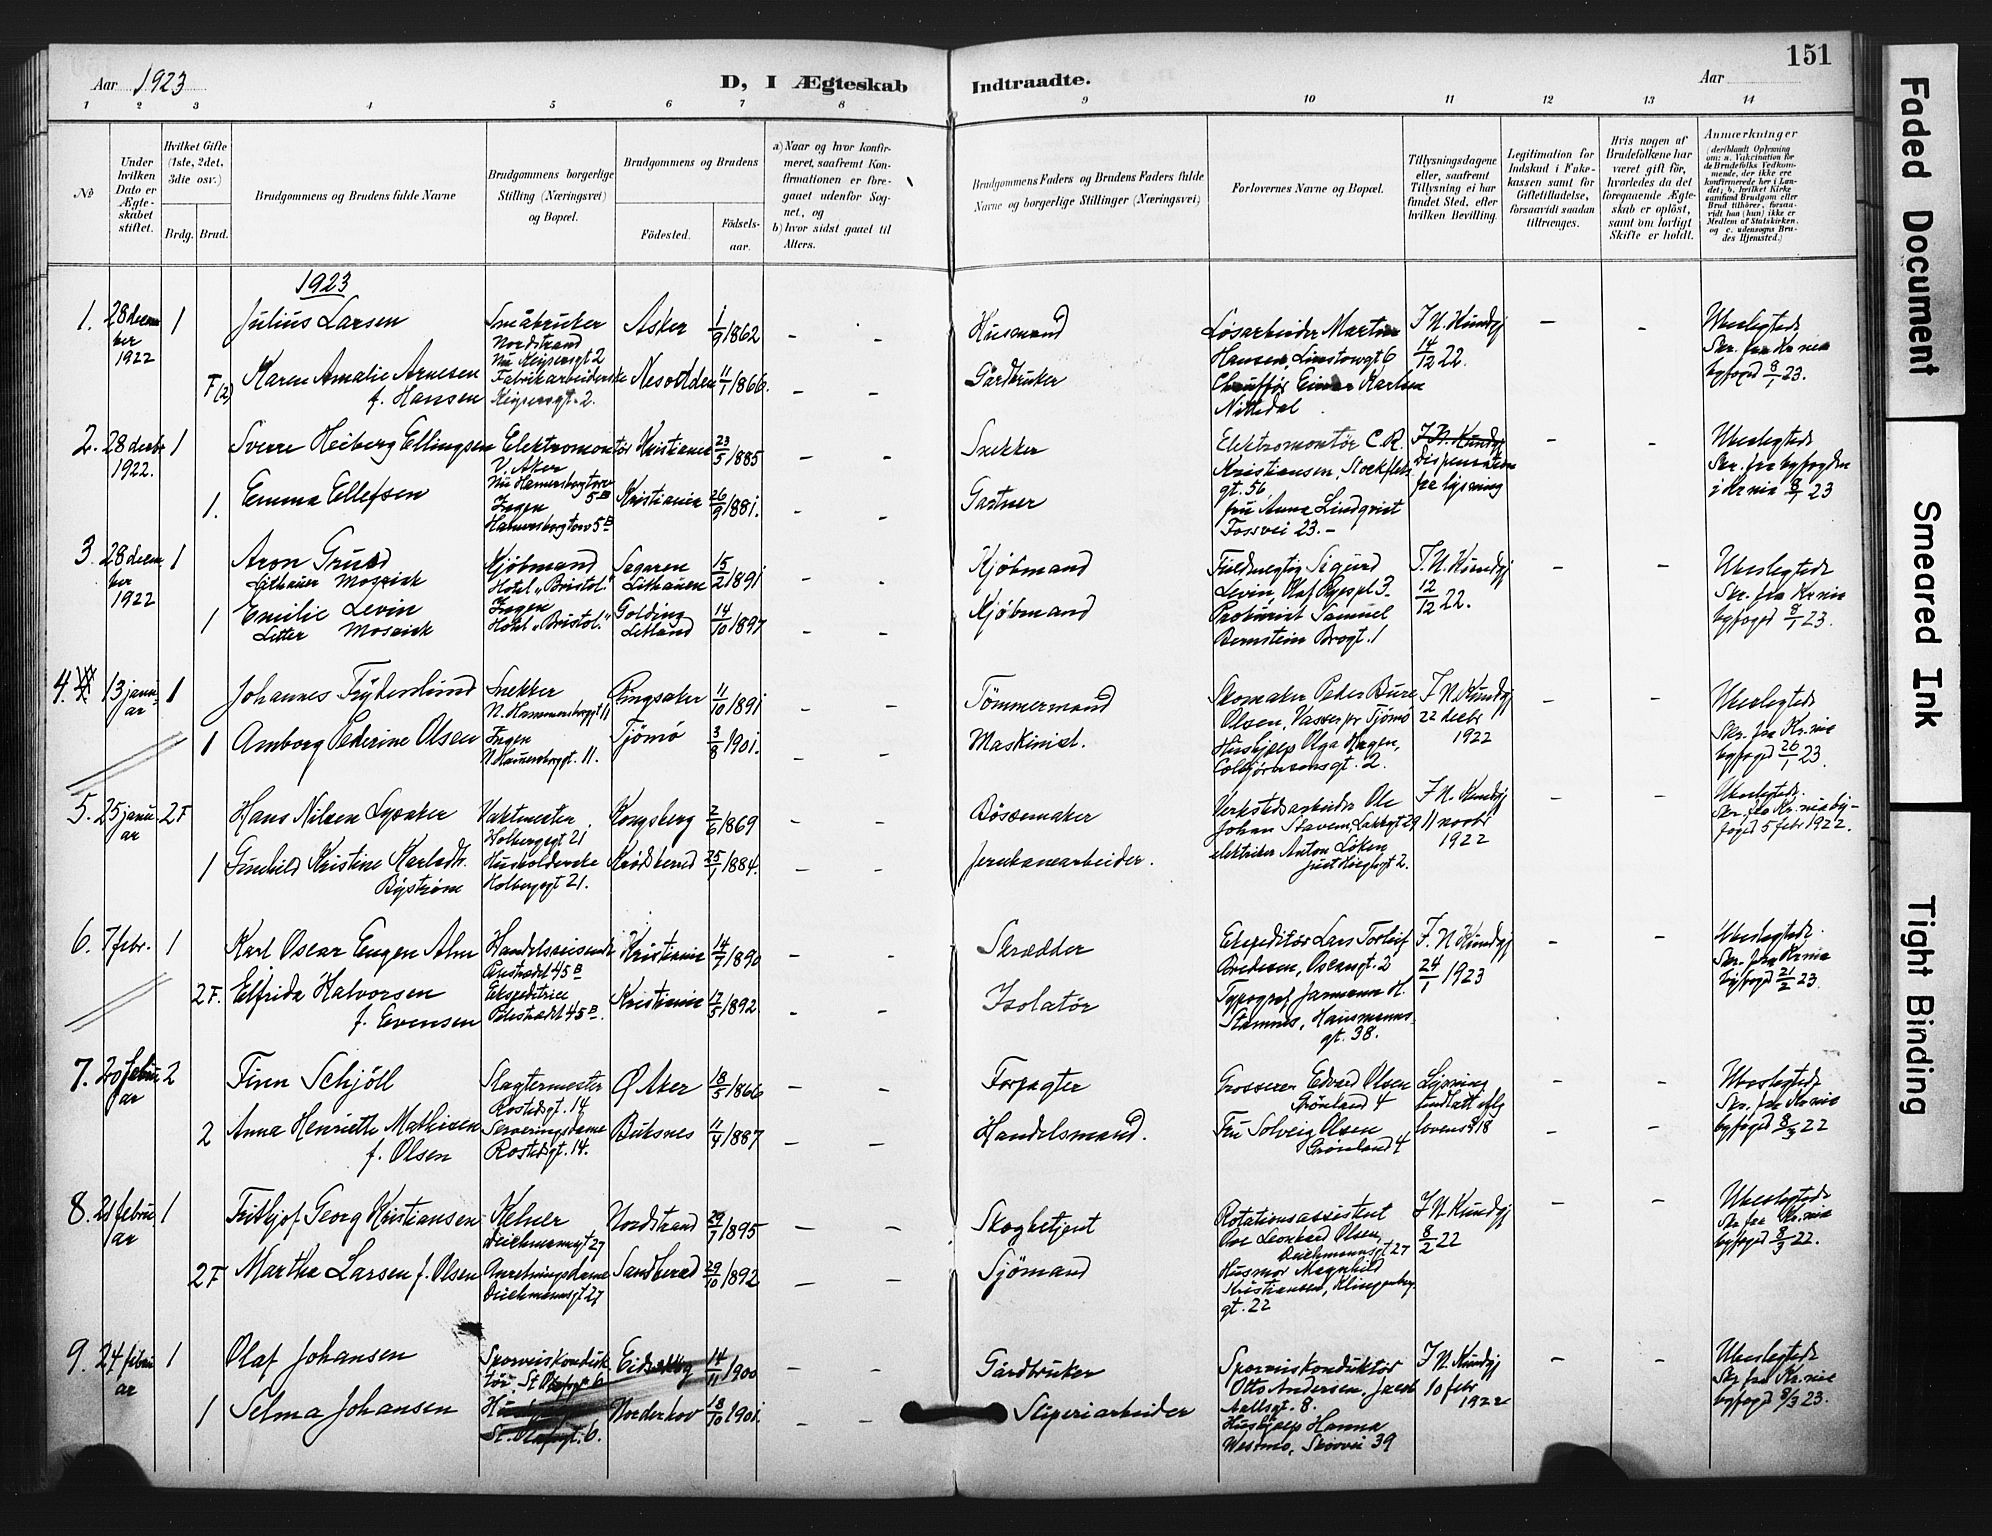 151
Aar 1923
D, I Ægteskab
Indtraadte.
Aar
1 2 3 4 5 6 7 8 9 10 11 12 13 14
№
Under hvilken Dato er Ægteskabet stiftet.
Hvilket Gifte (1ste, 2det, 3die osv.)
Brdg. Brud.
Brudgommens og Brudens fulde Navne
Brudgommens borgerlige Stilling (Næringsvei) og Bopæl.
Brudgommens og Brudens
Fødested.
Fødselsaar.
a) Naar og hvor konfirmeret, saafremt Konfirmationen er foregaaet udenfor Sognet, og
b) hvor sidst gaaet til Alters.
Brudgommens Faders og Brudens Faders fulde Navne og borgerlige Stillinger (Næringsvei)
Forlovernes Navne og Bopæl.
Tillysningsdagene eller, saafremt Tillysning ei har fundet Sted, efter hvilken Bevilling.
Legitimation for Indskud i Enkekassen samt for Giftetilladelse, forsaavidt saadan tiltrænges.
Hvis nogen af Brudefolkene har været gift før, hvorledes da det foregaaende Ægteskab er opløst, samt om lovligt Skifte er holdt.
Anmærkninger
1923
1. 28 decem
ber
1922
1
Julius Larsen
Småbruker
Nordstrand
Nu Keysersgt 2
Asker
1/9 1862
Husmand
Løsarbeider Martin
Hansen, Linstowgt 6
F. N. Kundgj
14/12 22.
Ubeslegtede
Skr. fra Kr.nia
byfoged 8/1 23.
F(2)
Karen Amalie Arnesen
f. Hansen
Fabrikarbeiderske
Keysersgt. 2.
Nesodden
11/1 1866.
Gårdbruker
Chauffør Einar Karlsen
Nittedal
2. 28 decbr
1922.
1
Sverre Heiberg Ellingsen
Elektromontør
V. Aker
Nu Hamersborgtorv
5 B
Kristiania
23/5 1885
Snekker
Elektromontør C. R.
Kristiansen, Stockfleths
gt. 56
F. N. Kundgj
Dispensation
fra lysning
Ubeslegtede
Skr. fra byfogden
i Kr.nia 8/1 23
1.
Emma Ellefsen
Ingen
Hamersborgtorv 5 B
Kristiania
26/9 1881.
Gartner
fru Anna Lindqvist
Fossvei 23.-
3. 28 decem
ber
1922
1
Aron Grusd
Lithauer Mosaisk
Kjøbmand
Hotel "Bristol."
Sagaren
Lithauen
15/2 1891
Kjøbmand
Fuldmegtig Sigurd
Levin, Olaf Ryespl 3
F. N. Kundgj
12/12 22.
Ubeslegtede
Skr. fra Kr.nia
byfoged 8/1 23.
1
Emilie Levin
Letter Mosaisk
Ingen
Hotel "Bristol."
Golding
Letland
14/10 1897
Kjøbmand
Prokurist Samuel
Bernstein Brogt. 1
4. 13 janu
ar
1
Johannes Frykenlund
Snekker
N. Hammersborggt 11
Ringsaker
11/10 1891
Tömmermand
Skomaker Peder Bure
Olsen, Vasser pr Tjömö
F. N. Kundgj
22 decbr
1922
Ubeslegtede
Skr. fra Kr.nia
byfoged 26/1 23.
1
Amborg Pederine Olsen
Ingen
N. Hamersborggt. 11.
Tjömö
3/8 1901.
Maskinist.
Hushjælp Olga Hagen,
Colbjørnsensgt. 2.
5. 25 janu
ar
2 F
Hans Nilsen Lysaker
Vaktmester
Holbergsgt 21
Kongsberg
2/6 1869
Bössemaker
Verkstedsarbeider Ole
Johan Stavem, Lakkegt 29
F. N. Kundgj
11 novbr
1922
Ubeslegtede.
Skr. fra Kr.nia by-
foged 5 febr 1922.
1
Gunhild Kristine Karlsdtr.
Byström
Husholderske
Holbergsgt 21.
Krödsherad
25/1 1884.
Jernbanearbeider.
elektriker Anton Løken
Just Höeghsgt 2.
6. 7 febr.
1
Karl Oscar Eugen Alm
Handelsreisende
Pilestrædet 45 B
Kristiania
14/7 1890
Skrædder
Ekspeditör Lars Torleif
Bredesen, Oscarsgt. 2
F. N Kundgj
24/1 1923
Ubeslegtede.
Skr. fra Kr.nia
byfoged 21/2 23.
2 F.
Elfrida Halvorsen
f. Evensen
Ekspeditrice
Pilestrædet 45 B.
Kristiania
17/5 1892.
Isolatör
Typograf Jarmann H.
Stamnes, Hausmanns-
gt. 38.
7. 20 febru
ar
2
Finn Schjöll
Slagtermester
Rostedsgt. 14
Ø. Aker
18/5 1866
Forpagter
Grosserer Edvard Olsen
Grönland 4
Lysning
Ubeslegtede
Skr. fra Kr.nia
byfoged 8/3 22
2
Anna Henriette Mathisen
f. Olsen
Serveringsdame
Rostedsgt. 14.
Buksnes
11/4 1887
Handelsmand.
Fru Solveig Olsen
Grönland 4
lovens § 18
8. 21 febru
ar
1
Frithjof Georg Kristiansen
Kelner
Deichmannsgt 27
Nordstrand
29/7 1895
Skogbetjent
Rotationsassistent
Ove Leonhard Olsen,
Deichmannsgt 27
F. N Kundgj
8/2 22
Ubeslegtede
Skr fra Kr.nia
byfoged 8/3 22.
2 F
Martha Larsen f. Olsen
Anretningsdame
Deichmannsgt 27
Sandherad
29/10 1892
Sjömand
Husmor Magnhild
Kristiansen, Klingenberg
gt. 22
9. 24 febru
ar
1
Olaf Johansen
Sporveiskonduk-
tör, St Olafsgt 6
Eidskog
14/11 1900
Gårdbruker
Sporveiskonduktör
Otto Andersen, Jacob
Aallsgt. 8.
F. N Kundgj
10 febr
1922
Ubeslegtede
Skr fra Kr.nia
byfoged 8/3 23.
1
Selma Johansen
St. Olafsgt. 6.
Norderhov
18/10 1901.
Sliperiarbeider
Hushjælp Hanna
Westmo, Skovvei 39
Faded Document
Smeared Ink
Tight Binding